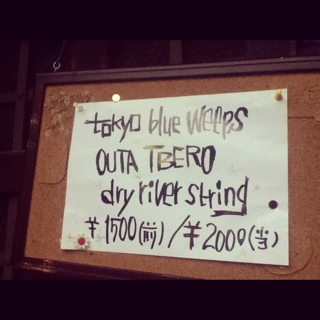 tokyo blue weeps
OUTA TBERO
dry river string
¥1500(前)/¥2000(当)